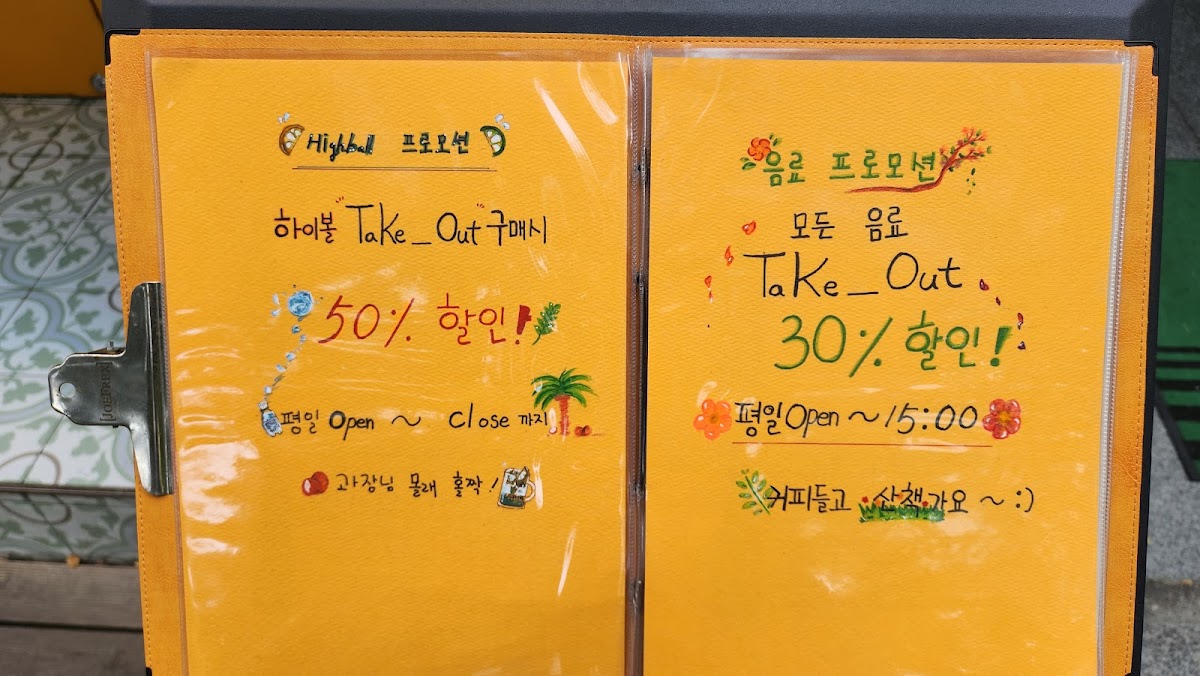 Highball 프로모션
하이볼 "Take_Out" 구매시
50% 할인!
평일 Open ~ Close 까지
과장님 몰래 홀짝!
음료 프로모션
모든 음료
Take_Out
30% 할인!
평일 Open ~ 15:00
커피들고 산책가요 ~ :)